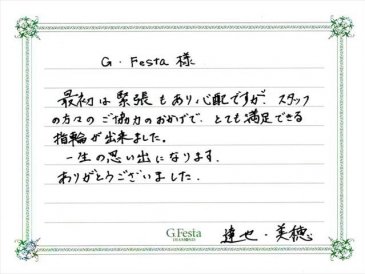 G・Festa 様
最初は緊張もあり心配ですが、スタッフ
の方々のご協力のおかげで、とても満足できる
指輪が出来ました。
一生の思い出になります。
ありがとうございました。
G.Festa
DIAMOND
達也・美穂